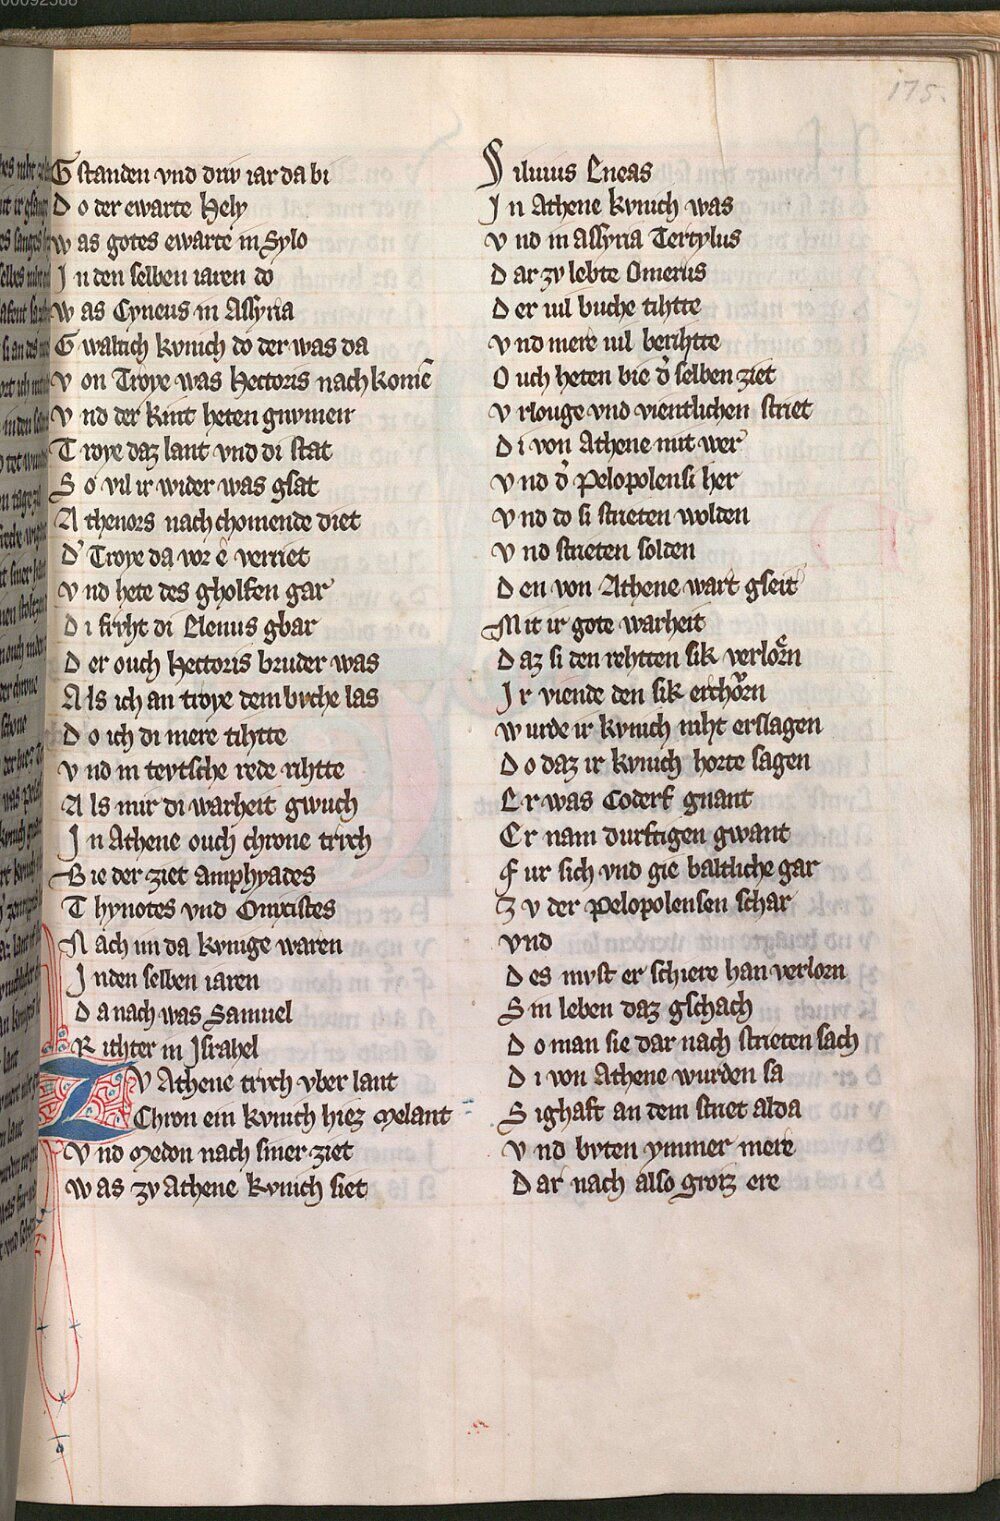 175.
Gstanden vnd driv iar da bi
Do der ewarte Hely
was gotes ewarte in Sylo
In den selben iaren do
was Cyneus in Assyria
Gwaltich kvnich do der was da
von Troye was Hectoris nach kome̅
vnd der kint heten gnvmen
Troye daz lant vnd di stat
So vil ir wider was gsat
Athenors nach chomende diet
D' Troye da vor e verriet
vnd hete des gholfen gar
Di frvht di Elenus gbar
Der ouch Hectoris bruder was
Als ich an troye dem bvche las
Do ich di mere tihtte
vnd in tevtsche rede rihtte
Als mir di warheit gwuch
In Athene ouch chrone trvch
Bie der ziet amphyades
Thynotes vnd Onixistes
Nach im da kvnige waren
In den selben iaren
Da nach was Samuel
Rihter in Israhel
Zv Athene trvch vber lant
Chron ein kvnich hiez melant
Vnd medon nach siner ziet
was zv Athene kvnich siet
Siluius Eneas
In Athene kvnich was
vnd in Assyria Tercylus
Dar zv lebte Omerus
Der uil buche tihtte
vnd mere uil berihtte
Ouch heten bie d' selben ziet
vrlouge vnd vientlichen striet
Di von Athene mit wer
vnd d' Pelopolensi her
vnd do si strieten wolden
vnd strieten solden
Den von Athene wart gseit
Mit ir gote warheit
Daz si den rehtten sik verlorn
Ir viende den sik erchorn
wurde ir kvnich niht erslagen
Do daz ir kvnich horte sagen
Er was Coderf gnant
Er nam durftigen gwant
Fur sich vnd gie baltliche gar
Zv der Pelopolensen schar
vnd
Des mvst er schiere han verlorn
Sin leben daz gschach
Do man sie dar nach strieten sach
Di von Athene wurden sa
Sighaft an dem striet alda
vnd bvten ymmer mere
Dar nach also groiz ere